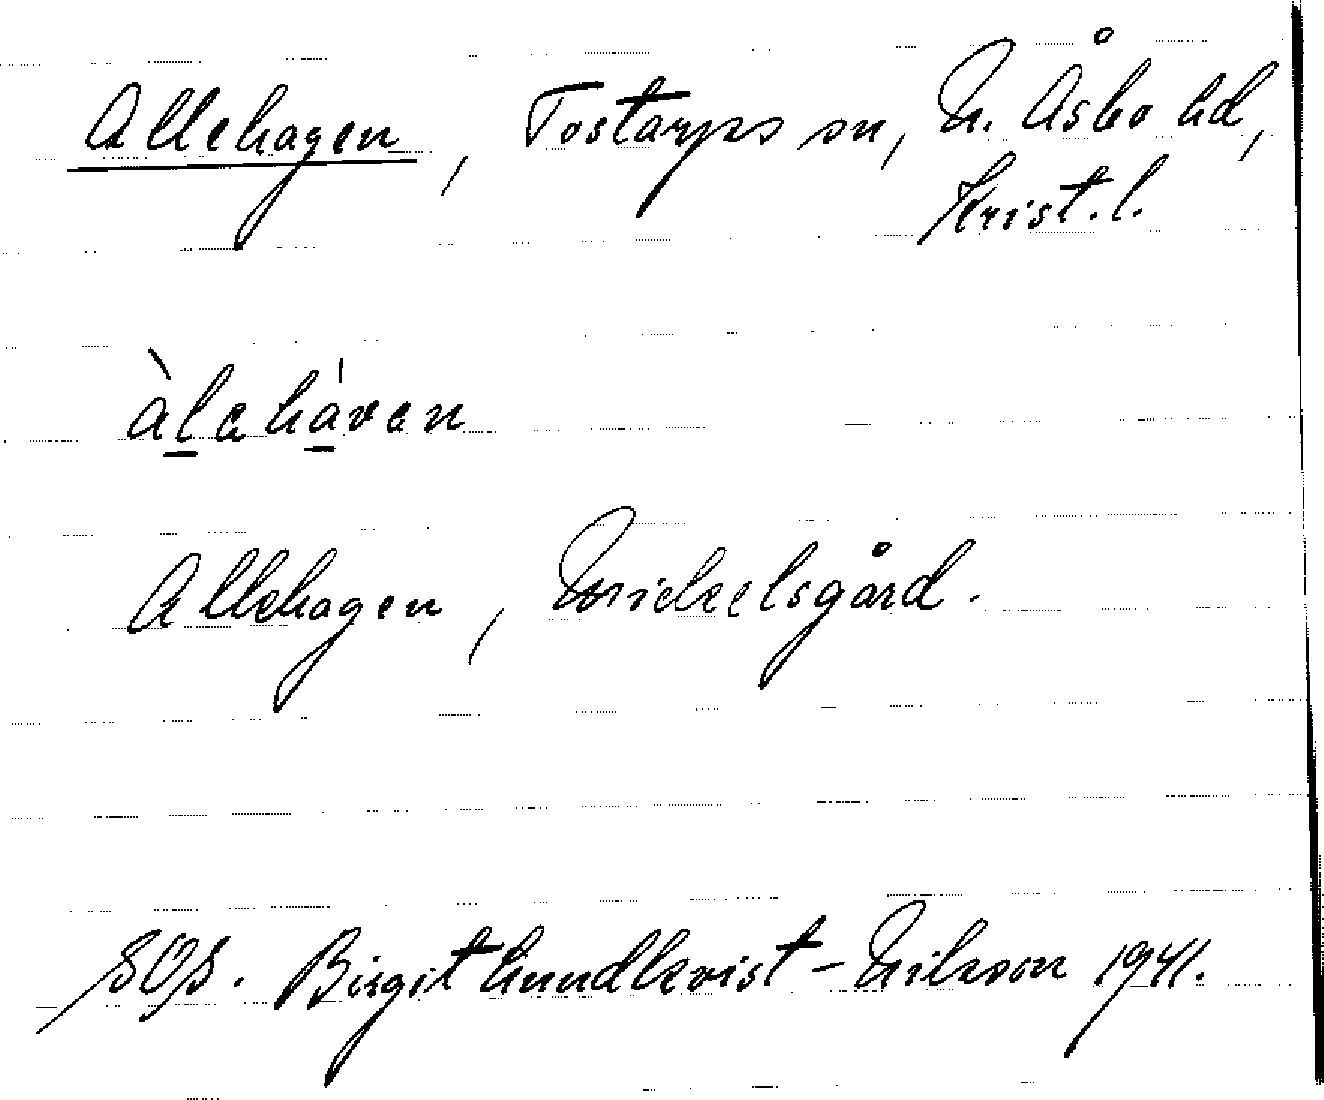 Allehagen, Tostarps sn, N. Åsbo hd,
Krist. l.
àleháven
Allehagen, Mickelsgård.
SOS. Birgit Lundkvist-Nilsson 1941.